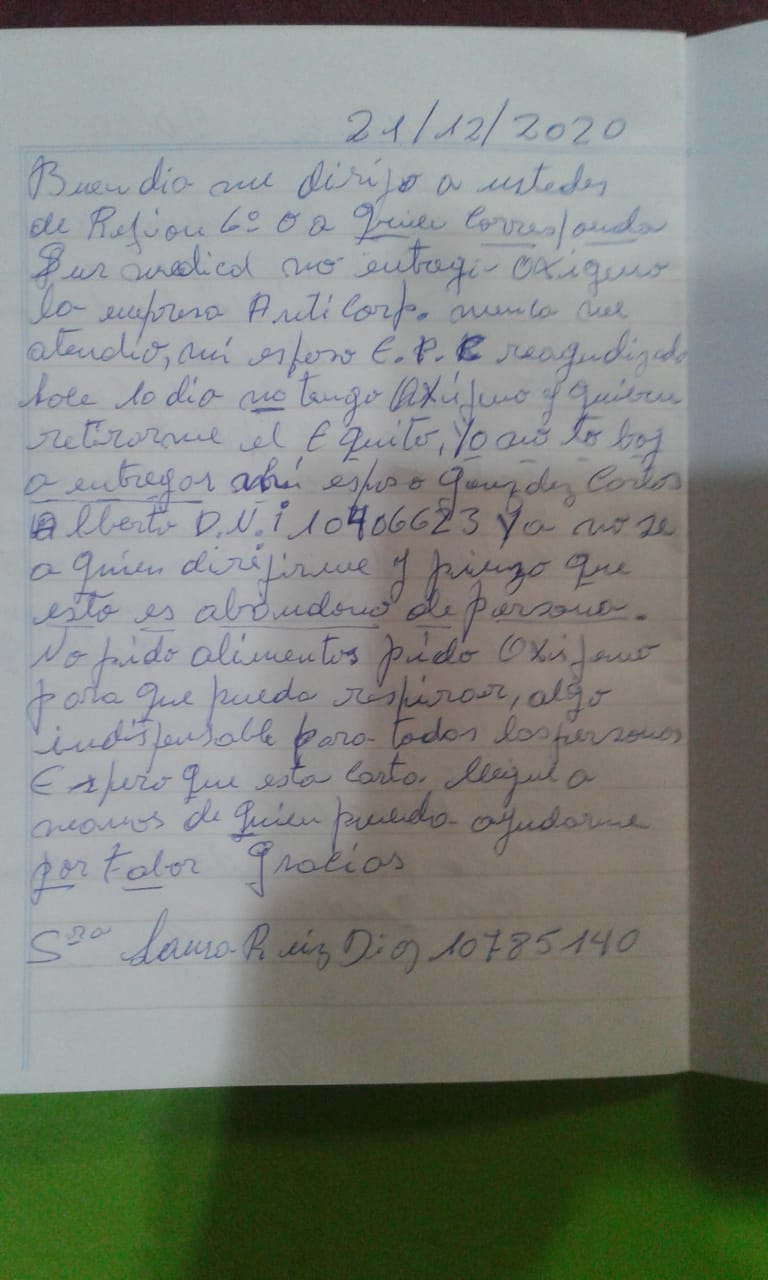 21/12/2020
Buen dia me dirijo a ustedes
de Region 6º o a quien corresponda
Sur medical no entrega oxigeno
la empresa AntiCorp. nunca me
atendio, mi esposo E.P.C reagudizado
hace lo dia no tengo oxijeno y quieren
retirarme el Equito, Yo no lo boy
a entregar mi esposo Gonzalez Carlos
Alberto D.N.i 10406623 Ya no se
a quien dirijirme y pienzo que
esto es abondono de persona.
No pido alimentos pido Oxijeno
para que pueda respirar, algo
indispensable para todas las personas
Espero que esta carta llegue a
manos de quien pueda ayudarme
por fabor Gracias
Sra Laura Ruiz Diaz 10785140